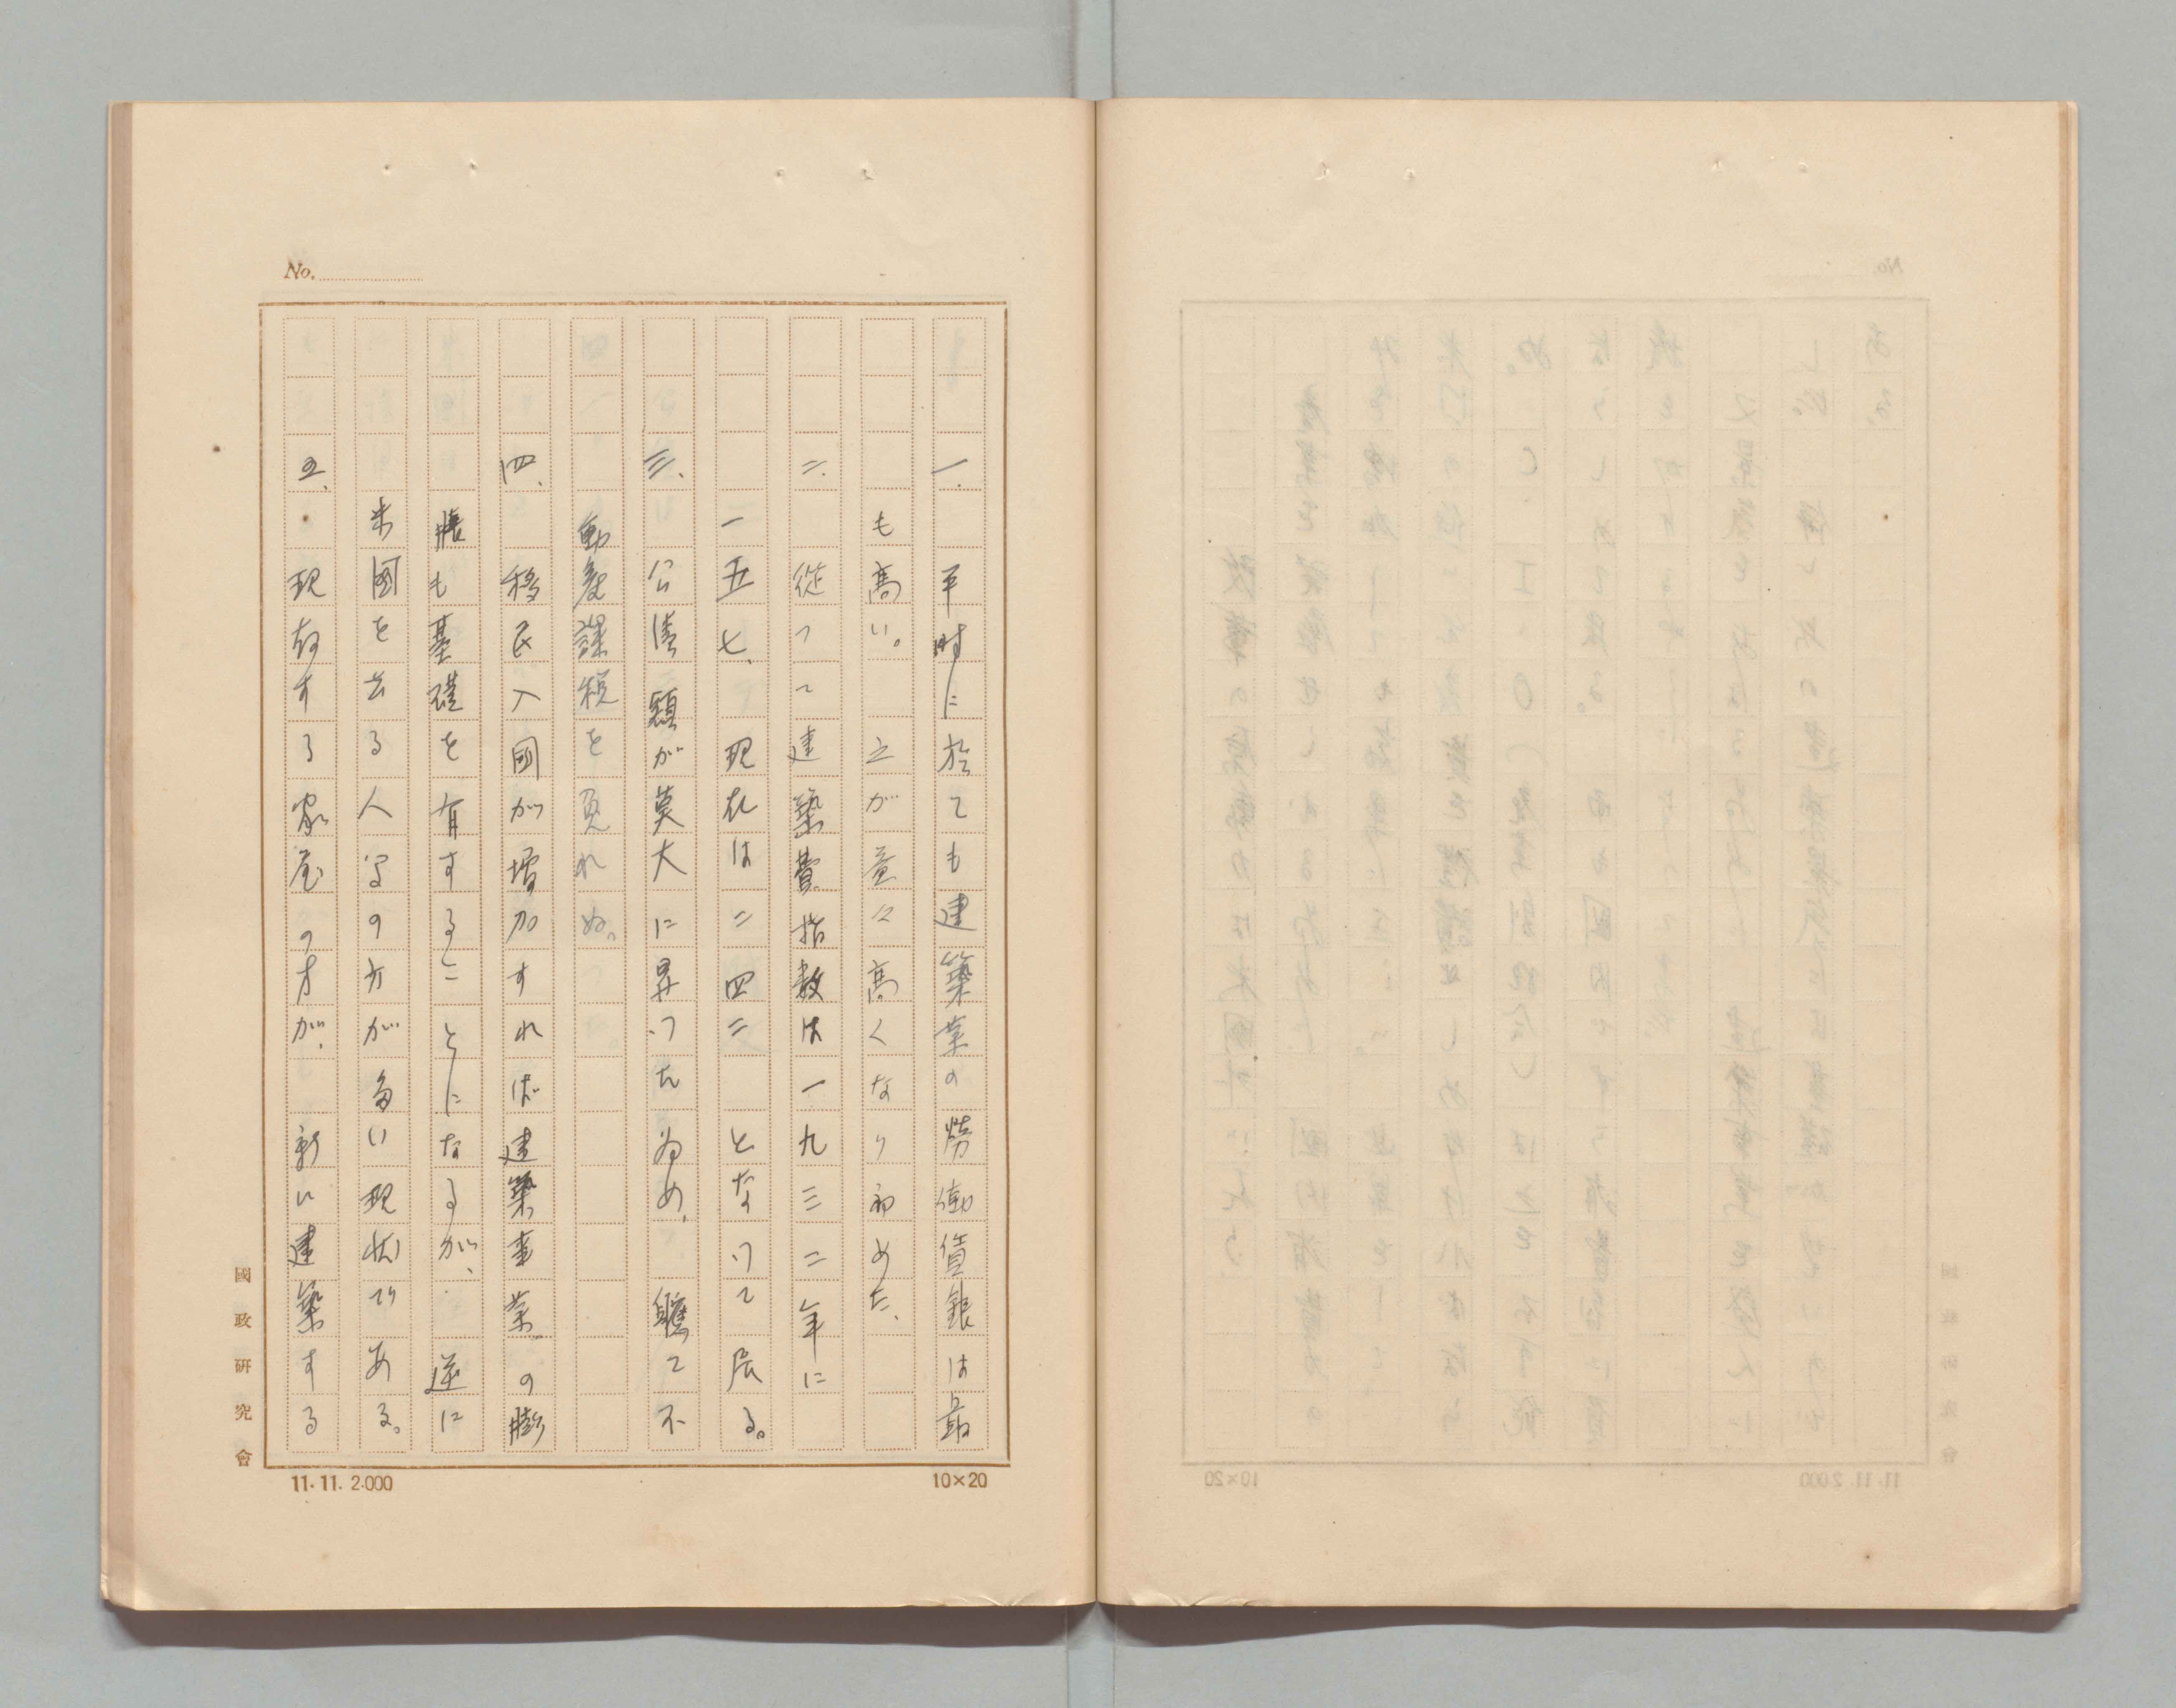 No.
一、平時に於ても建築業の労働賃銀は最
も高い。之が益々高くなり初めた、
二、従つて建築費指数は一九三二年に
一五七、現在は二四二となつて居る。
三、公債額が莫大に昇つた為め、軈て不
動産課税を免れぬ。
四、移民入國が増加すれば建築事業の膨
脹も基礎を有することになるが、逆に
米國を去る人の方が多い現状である。
五、現存する家屋の方が、新に建築する
國政研究會
11.11.2.000
10×20